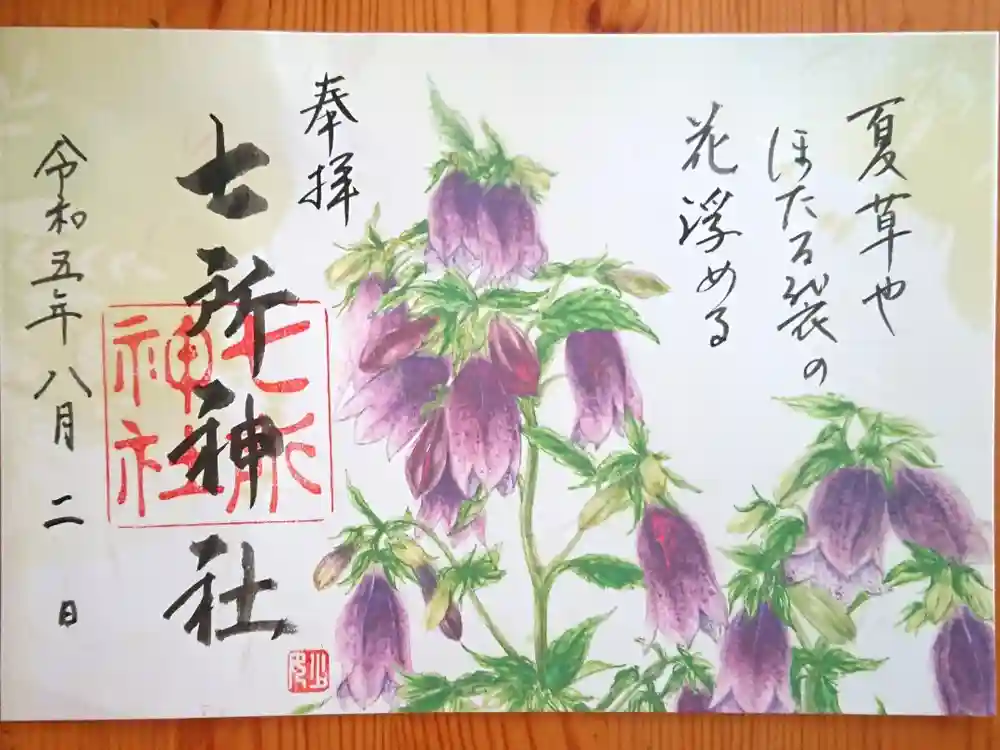 夏草や
ほたる袋の
花浮める
奉拝
七所神社
七所
神社
令和五年八月二日